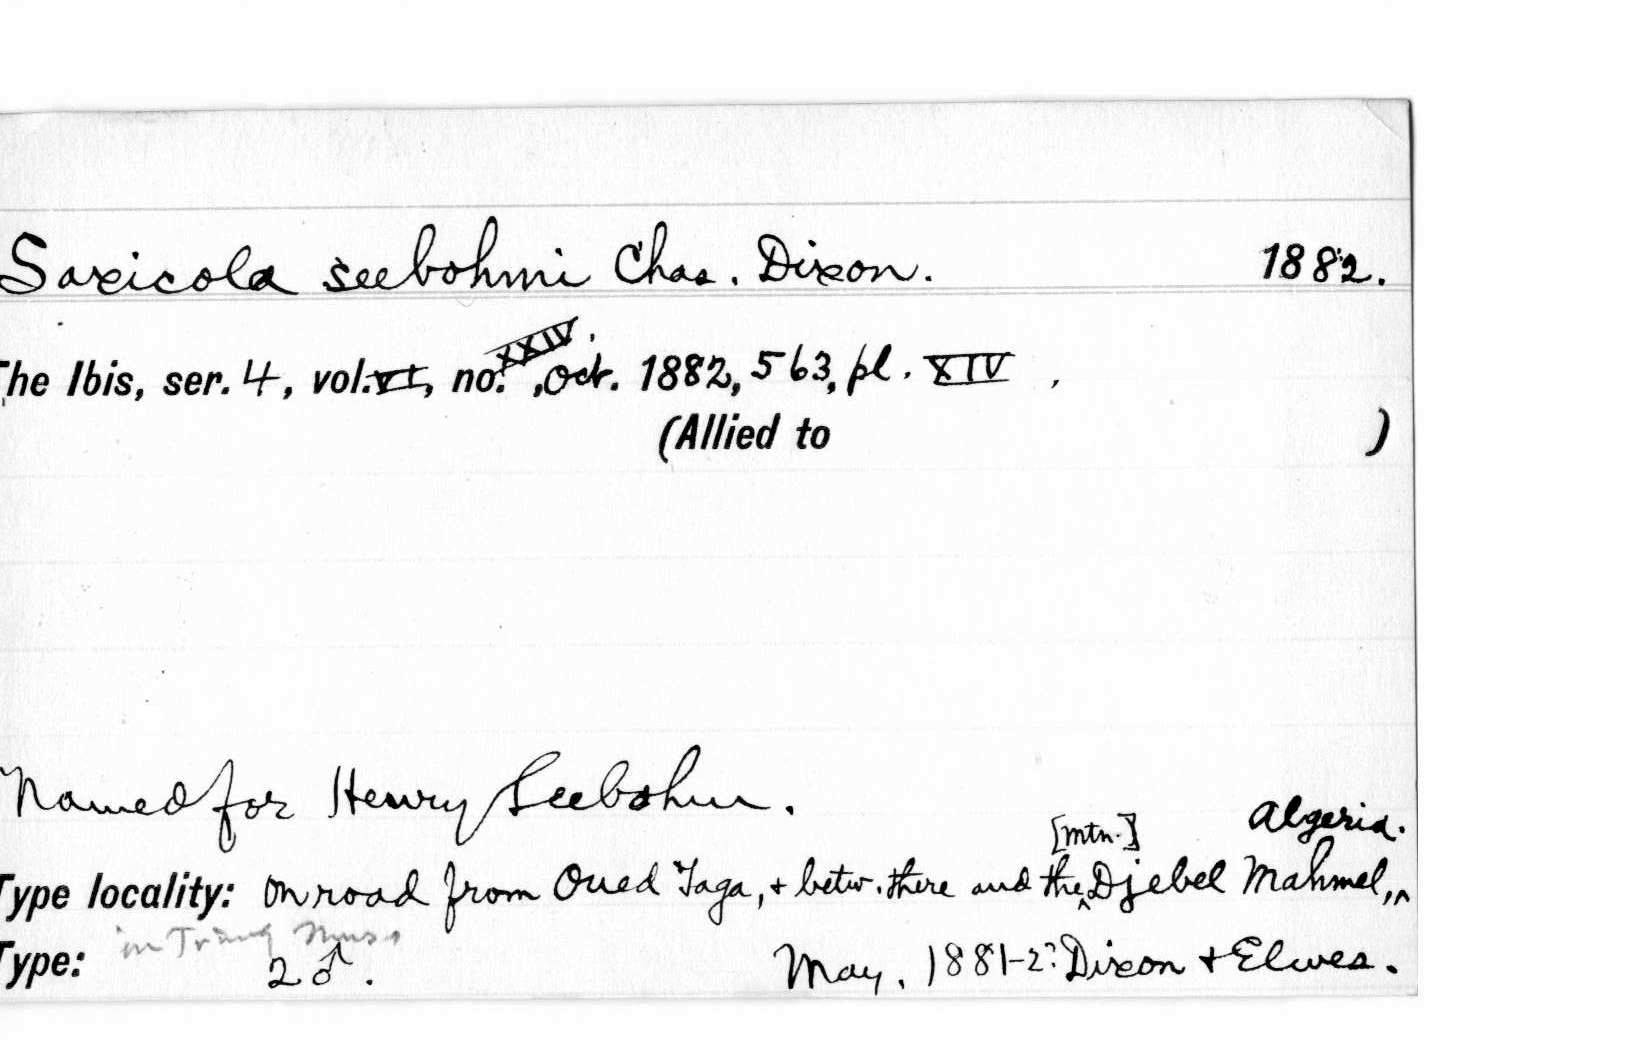 Saxicola seebohmi Chas. Dixon. 1882.
The Ibis, ser. 4, vol. VI, no. XXIV., Oct. 1882, 563, pl. XIV ,
(Allied to )
Named for Henry Seebohm.
[mtn.] Algeria.
Type locality: on road from Oued Taga, + betw. there and the ^ Djebel Mahmel, ^
in Tring Mus.
Type: 2 ♂. May, 1881-2? Dixon + Elwes.